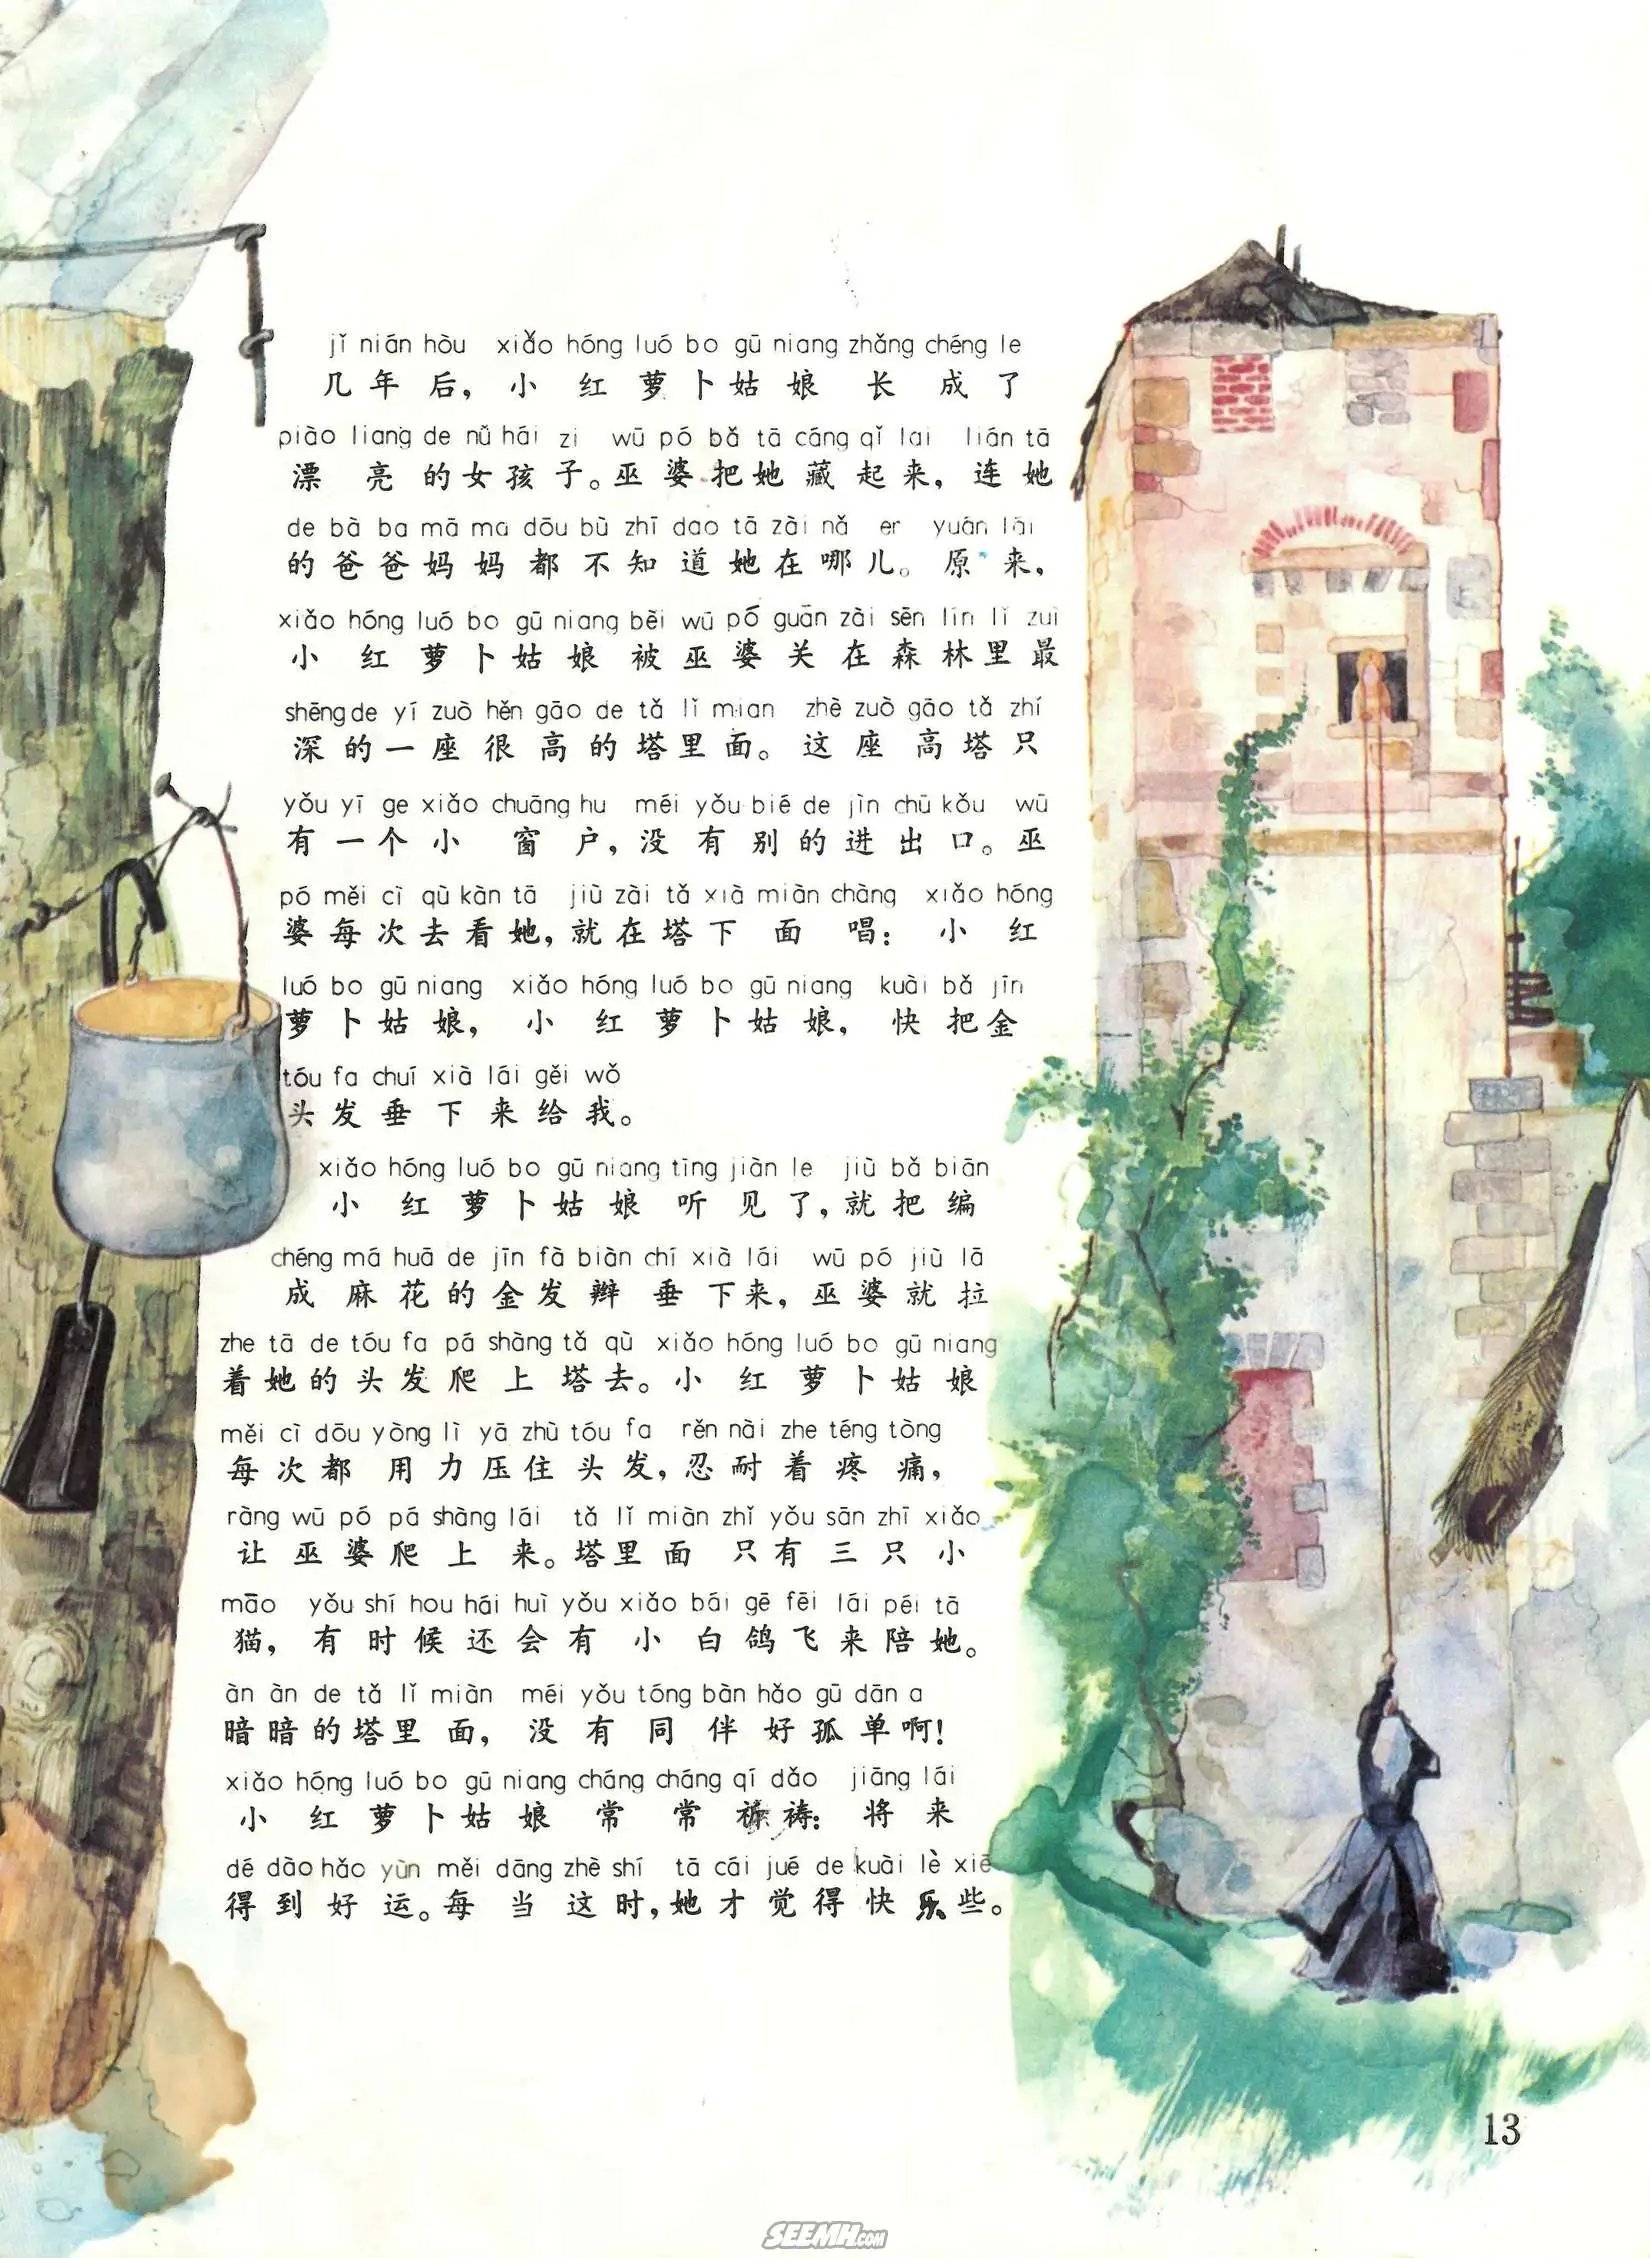 jǐ nián hòu xiǎo hóng luó bo gū niang zhǎng chéng le
几年后，小红萝卜姑娘长成了
piào liang de nǚ hái zi wū pó bǎ tā cáng qǐ lai lián tā
漂亮的女孩子。巫婆把她藏起来，连她
de bà ba mā ma dōu bù zhī dao tā zài nǎ er yuán lái
的爸爸妈妈都不知道她在哪儿。原来，
xiǎo hóng luó bo gū niang bèi wū pó guān zài sēn lín lǐ zuì
小红萝卜姑娘被巫婆关在森林里最
shēng de yí zuò hěn gāo de tǎ lǐ mian zhè zuò gāo tǎ zhí
深的一座很高的塔里面。这座高塔只
yǒu yī ge xiǎo chuāng hu méi yǒu bié de jìn chū kǒu wū
有一个小窗户，没有别的进出口。巫
pó měi cì qù kàn tā jiù zài tǎ xià miàn chàng xiǎo hóng
婆每次去看她，就在塔下面唱：小红
luó bo gū niang xiǎo hóng luó bo gū niang kuài bǎ jīn
萝卜姑娘，小红萝卜姑娘，快把金
tóu fa chuí xià lái gěi wǒ
头发垂下来给我。
xiǎo hóng luó bo gū niang tīng jiàn le jiù bǎ biān
小红萝卜姑娘听见了，就把编
chéng má huā de jīn fà biàn chí xià lái wū pó jiù lā
成麻花的金发辫垂下来，巫婆就拉
zhe tā de tóu fa pá shàng tǎ qù xiǎo hóng luó bo gū niang
着她的头发爬上塔去。小红萝卜姑娘
měi cì dōu yòng lì yā zhù tóu fa rěn nài zhe téng tòng
每次都用力压住头发，忍耐着疼痛，
ràng wū pó pá shàng lái tǎ lǐ miàn zhǐ yǒu sān zhī xiǎo
让巫婆爬上来。塔里面只有三只小
māo yǒu shí hou hái huì yǒu xiǎo bái gē fēi lái péi tā
猫，有时候还会有小白鸽飞来陪她。
àn àn de tǎ lǐ miàn méi yǒu tóng bàn hǎo gū dān a
暗暗的塔里面，没有同伴好孤单啊！
xiǎo hóng luó bo gū niang cháng cháng qí dǎo jiāng lái
小红萝卜姑娘常常祈祷：将来
dé dào hǎo yùn měi dāng zhè shí tā cái jué de kuài lè xiē
得到好运。每当这时，她才觉得快乐些。
13
SEEMH.com